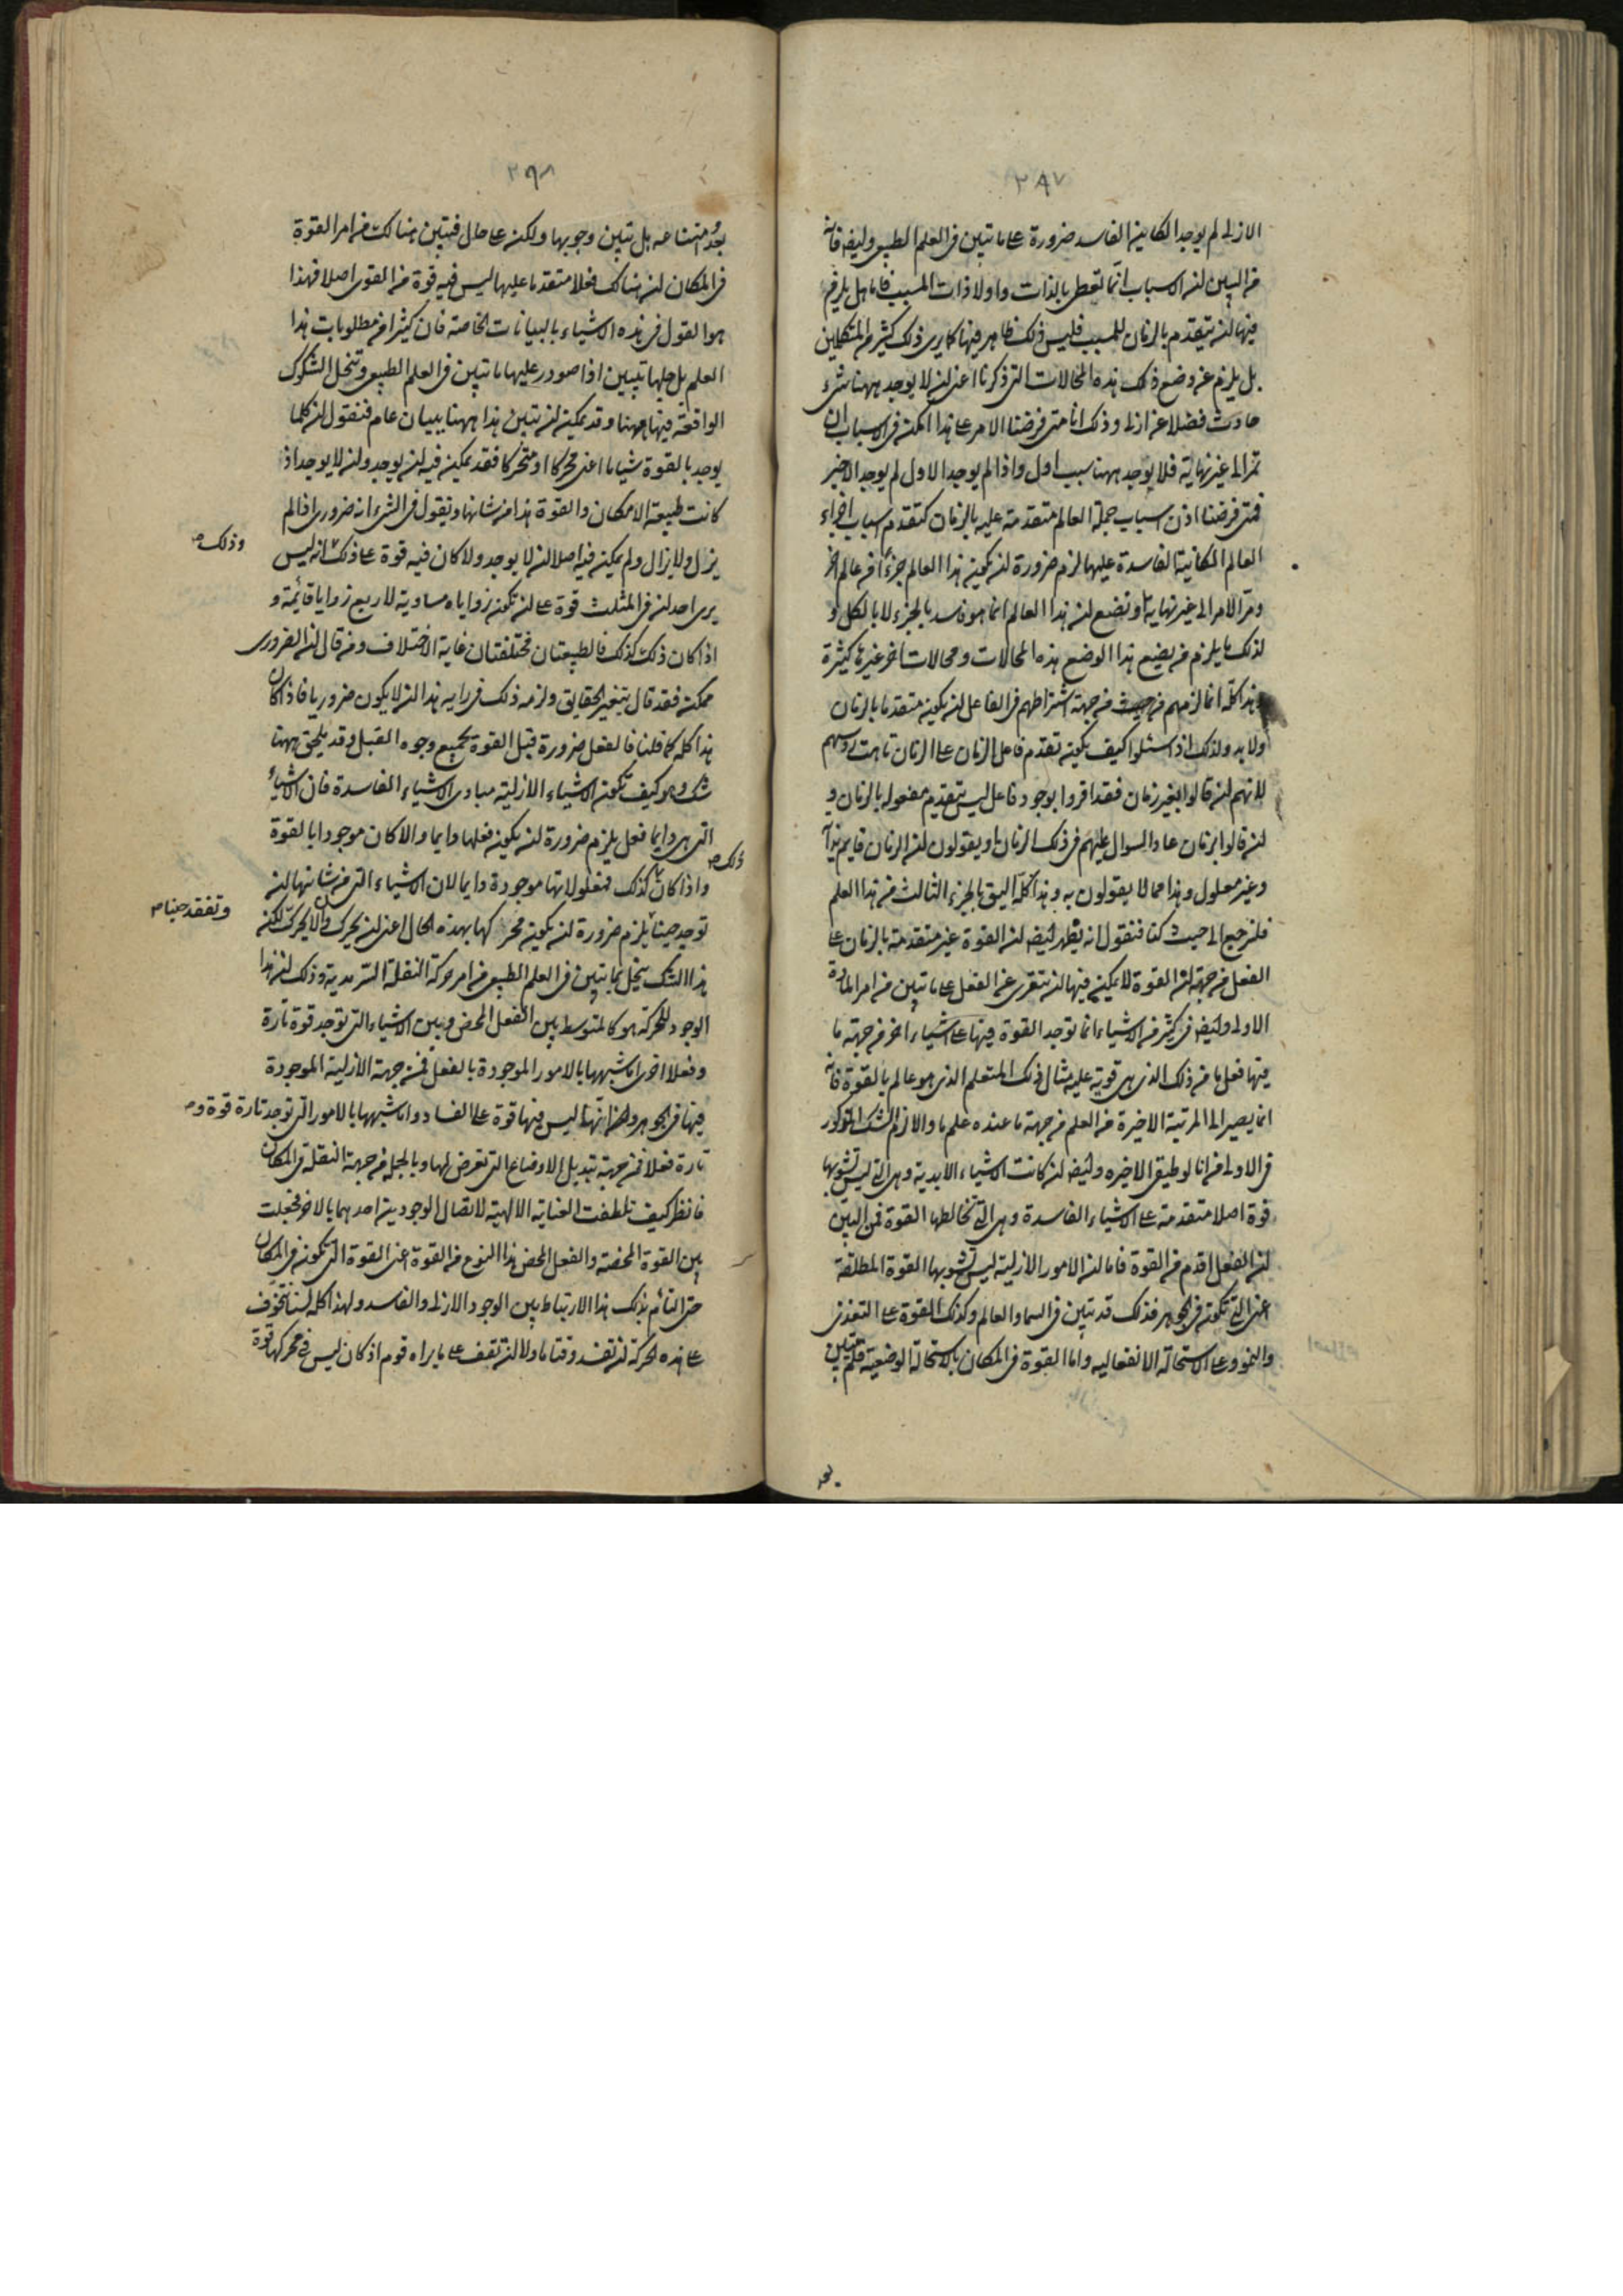 ٢٨٧
الازلى لم يوجد الكاين الفاسد ضرورة على ما تبين فى العلم الطبيعى وايضا فانه
من البين ان الاسباب انما تعطى بالذات واولا ذات المسبب فاما هل يلزم
فيها ان يتقدم بالزمان للمسبب فليس ذلك ظاهر فيها كما يرى ذلك كثير من المتكلمين
بل يلزم عن وضع ذلك هذه المحالات التى ذكرنا اعنى ان لا يوجد ههنا شىء
حادث فضلا عن ازلى وذلك انا متى فرضنا الامر على هذا امكن فى الاسباب ان
تمر الى غير نهاية فلا يوجد ههنا سبب اول واذا لم يوجد الاول لم يوجد الاخير
فمتى فرضنا اذن اسباب جملة العالم متقدمة عليه بالزمان كتقدم اسباب اجزاء
العالم الكاينة الفاسدة عليها لزم ضرورة ان يكون هذا العالم جزءا من عالم اخر
ومر الامر الى غير نهاية او نضع ان هذا العالم انما هو فاسد بالجزء لا بالكل و
لذلك ما يلزم من يضع هذا الوضع هذه المحالات ومحالات اخر غيرها كثيرة
وهذا كله انما لزمهم من حيث من جهة اشتراطهم فى الفاعل ان يكون متقدما بالزمان
ولا بد ولذلك اذا سئلوا كيف يكون تقدم فاعل الزمان على الزمان تاهت رؤسهم
لانهم ان قالوا بغير زمان فقد اقروا بوجود فاعل ليس يتقدم مفعوله بالزمان و
ان قالوا بزمان عاد السوال عليهم فى ذلك الزمان او يقولون ان الزمان قايم بذاته
وغير معلول وهذا مما لا يقولون به وهذا كله اليق بالجزء الثالث من هذا العلم
فلنرجع الى حيث كنا فنقول انه يظهر ايضا ان القوة غير متقدمة بالزمان على
الفعل من جهة ان القوة لا يمكن فيها ان تتعرى عن الفعل على ما تبين من امر المادة
الاولى وايضا فى كثير من الاشياء انما توجد القوة فيها على اشياء اخر من جهة ما
فيها فعل ما من ذلك الذى هى قوية عليه مثال ذلك المتعلم الذى هو عالم بالقوة فانه
انما يصير الى المرتبة الاخيرة من العلم من جهة ما عنده علم ما والا لزم الشك المذكور
فى الاولى من انالوطيقى الاخيره وايضا ان كانت الاشياء الابدية وهى التى ليس تشوبها
قوة اصلا متقدمة على الاشياء الفاسدة وهى التى تخالطها القوة فمن البين
ان الفعل اقدم من القوة فاما ان الامور الازلية ليس تشوبها القوة المطلقة
اعنى التى تكون فى الجوهر فذلك قد تبين فى السما والعالم وكذلك القوة على التغذى
والنمو وعلى الاستحالة الانفعاليه واما القوة فى المكان بالاستحالة الوضعية فلم يتبين
بعد
٢٩٨
بعد امتناعه بل تبين وجوبها ولكنه على حال فتبين هنالك من امر القوة
فى المكان ان هناك فعلا متقدما عليها ليس فيه قوة من القوى اصلا فهذا
هو القول فى هذه الاشياء بالبيانات الخاصة فان كثيرا من مطلوبات هذا
العلم بل جلها تبين اذا صودر عليها ما تبين فى العلم الطبيعى وتنحل الشكوك
الواقعة فيها ههنا وقد يمكن ان نبين هذا ههنا ببيان عام فنقول ان كلما
يوجد بالقوة شيا ما اعنى محركا او متحركا فقد يمكن فيه ان يوجد وان لا يوجد اذ
كانت طبيعة الامكان والقوة هذا من شانها ونقول فى الشىء انه ضرورى اذا لم
يزل ولا يزال ولم يمكن فيه اصلا ان لا يوجد ولا كان فيه قوة على ذلك انه ليس
وذلك صح
يرى احد ان فى المثلث قوة على ان تكون زواياه مساوية لاربع زوايا قائمة و
اذا كان ذلك كذلك فالطبيعتان مختلفتان غاية الاختلاف ومن قال ان الضرورى
ممكن فقد قال بتغير الحقايق ولزمه ذلك فى رايه هذا ان لا يكون ضروريا فاذا كان
هذا كله كما قلنا فالفعل ضرورة قبل القوة بجميع وجوه القبل وقد يلحق ههنا
شك وهو كيف تكون الاشياء الازلية مبادى الاشياء الفاسدة فان الاشياء
التى هى دايما فعل يلزم ضرورة ان يكون فعلها دايما والا كان موجودا بالقوة
واذا كان كذلك فمفعولاتها موجودة دايما لان الاشياء التى من شانها ان
ذلك صح
توجد حينا يلزم ضرورة ان يكون محركها بهذه الحال اعنى ان يحرك والا يحرك لكن
وتفقد حينا صح
هذا الشك ينحل بما تبين فى العلم الطبيعى من امر حركة النقلة السرمدية وذلك ان هذا
الوجود للحركة هو كالمتوسط بين الفعل المحض وبين الاشياء التى توجد قوة تارة
وفعلا اخرى اما شبهها بالامور الموجودة بالفعل فمن جهة الازلية الموجودة
فيها فى الجوهر وانها ليس فيها قوة على الفساد واما شبهها بالامور التى توجد تارة قوة و
تارة فعلا فمن جهة تبديل الاوضاع التى تعرض لها وبالجملة من جهة النقلة فى المكان
فانظر كيف تلطفت العناية الالهية لاتصال الوجودين احدهما بالاخر فجعلت
بين القوة المحضة والفعل المحض هذا النوع من القوة اعنى القوة التى تكون فى المكان
حتى التأم بذلك هذا الارتباط بين الوجود الازلى والفاسد ولهذا كله لسنا نتخوف
على هذه الحركة ان تفسد وقتا ما ولا ان تقف على ما يراه قوم اذ كان ليس فى محركها قوة